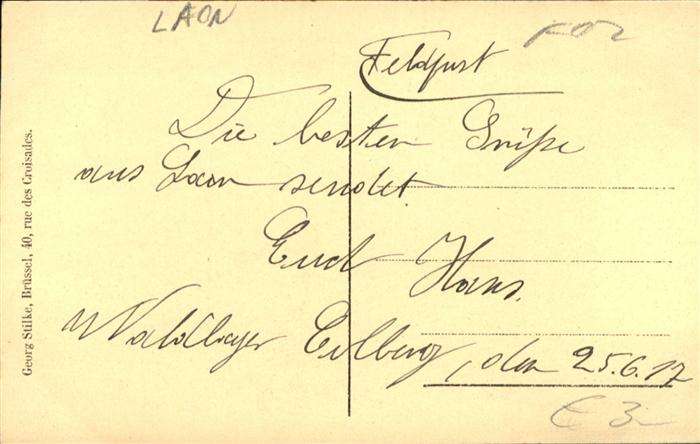 LAON
Feldpost
Die besten Grüße
aus Laon sendet
Euch Hans.
Waldlager Eilberg, den 25.6.17
€ 3
Georg Stilke, Brüssel, 40, rue des Croisades.